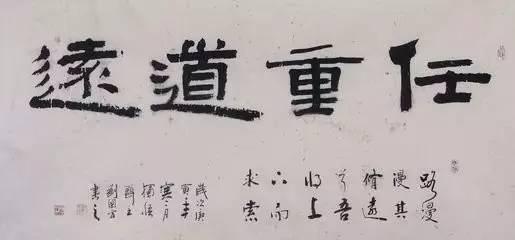 任重道遠
路漫
漫其
脩遠
兮吾
將上
下而
求索
歲次庚
寅年
寒月
書之